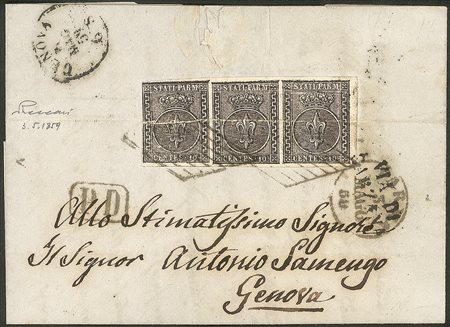 GENOVA
STATI PARM STATI PARM STATI PARM
CENTES. 10 CENTES. 10 CENTES. 10
3.5.1859
VIA DI
PD
Allo Stimatissimo Signore
Il Signor Antonio Samengo
Genova